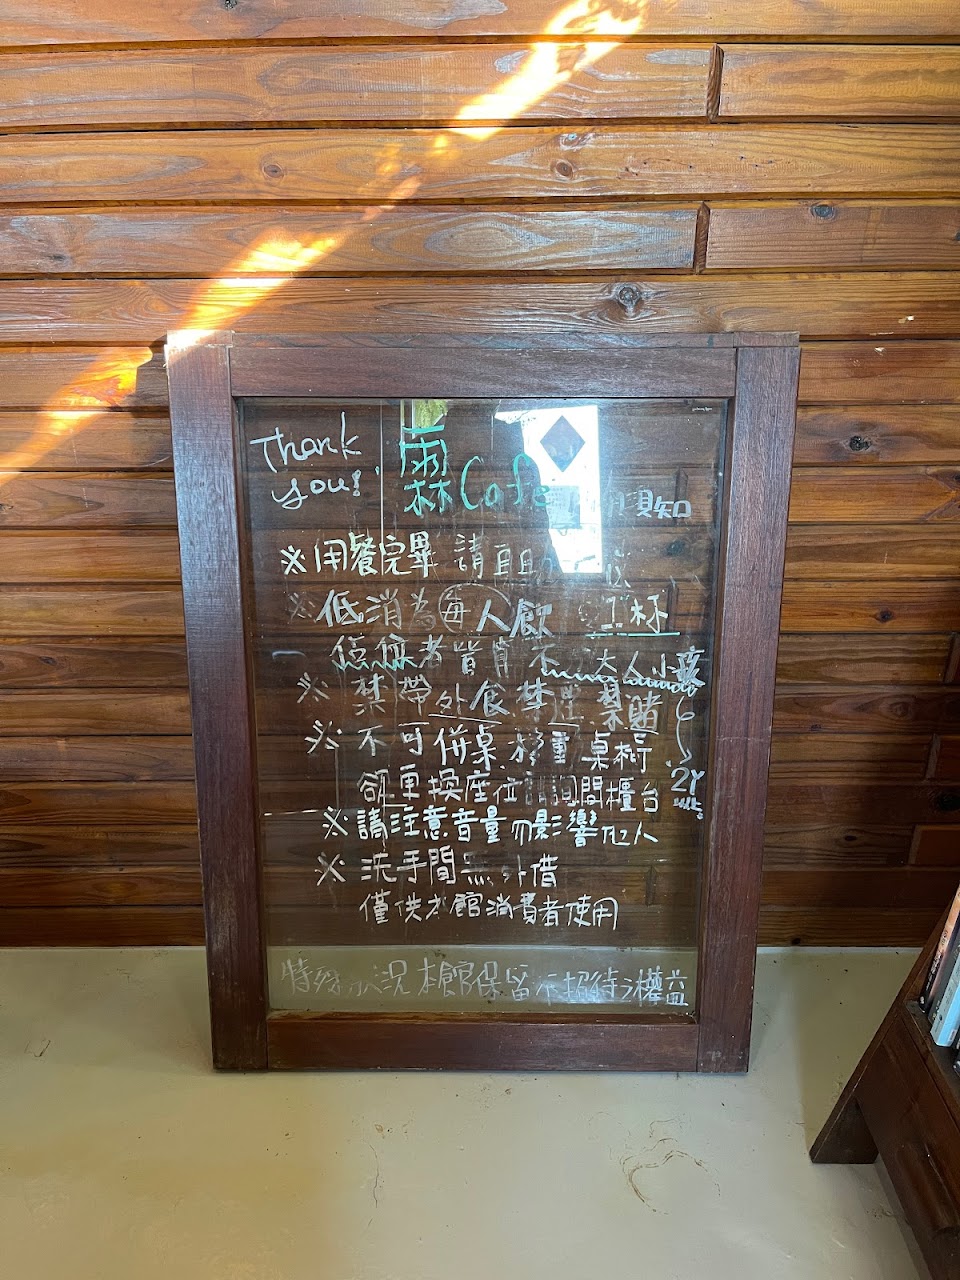 Thank
you!
霖 Cafe 須知
※用餐完畢 請自助
※低消為每人飲 1杯
佔位者皆 不 大人小孩
※禁帶外食 禁 賭
2Y
※不可併桌 移動桌椅
欲更換座位請詢問櫃台
※請注意音量勿影響他人
※洗手間無外借
僅供本館消費者使用
特殊狀況 本館保留不招待之權益